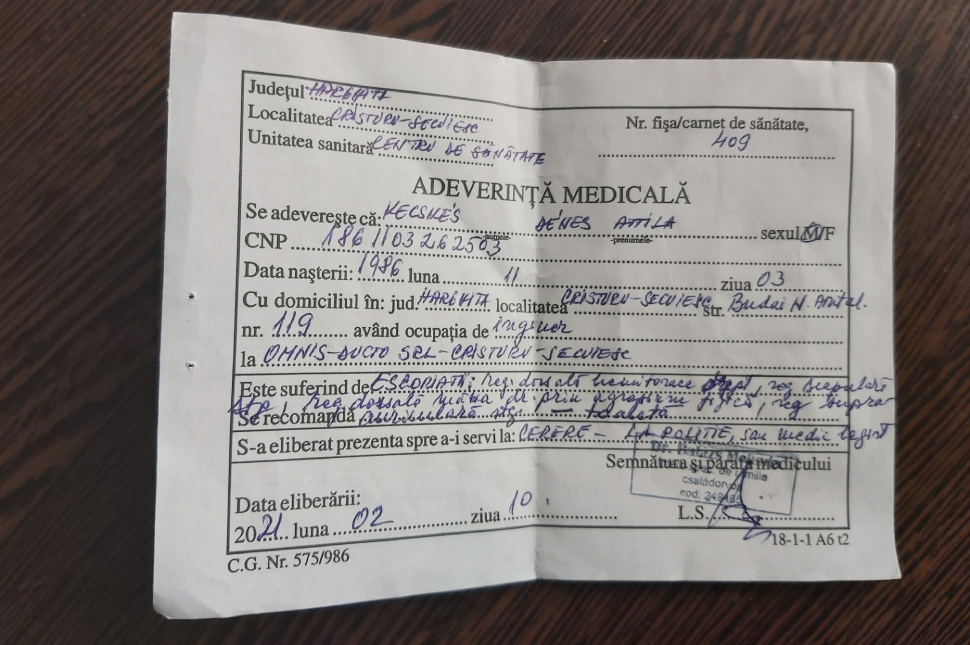 Județul HARGHITA
Localitatea CRISTURU-SECUIESC
Unitatea sanitară CENTRU DE SĂNĂTATE
Nr. fișa/carnet de sănătate,
409
ADEVERINȚĂ MEDICALĂ
Se adeverește că: KECSKÉS DÉNES ATTILA sexul M/F
-numele- -prenumele-
CNP 1861103262503
Data nașterii: 1986 luna 11 ziua 03
Cu domiciliul în: jud. HARGHITA localitatea CRISTURU-SECUIESC str. Budai N. Antal.
nr. 119 având ocupația de inginer
la OMNIS-DUCTO SRL-CRISTURU-SECUIESC
Este suferind de ESCORIAȚII, reg. dorsală hemitorace drept, reg. scapulară
stg, reg. dorsală mâna dr prin agresiune fizică, reg. supra
Se recomandă stg.
S-a eliberat prezenta spre a-i servi la: CERERE - LA POLIȚIE, sau medic legist
Semnătura și parafa medicului
de familie
családorvos
cod.
Data eliberării:
2021 luna 02 ziua 10
L.S.
C.G. Nr. 575/986
18-1-1 A6 t2